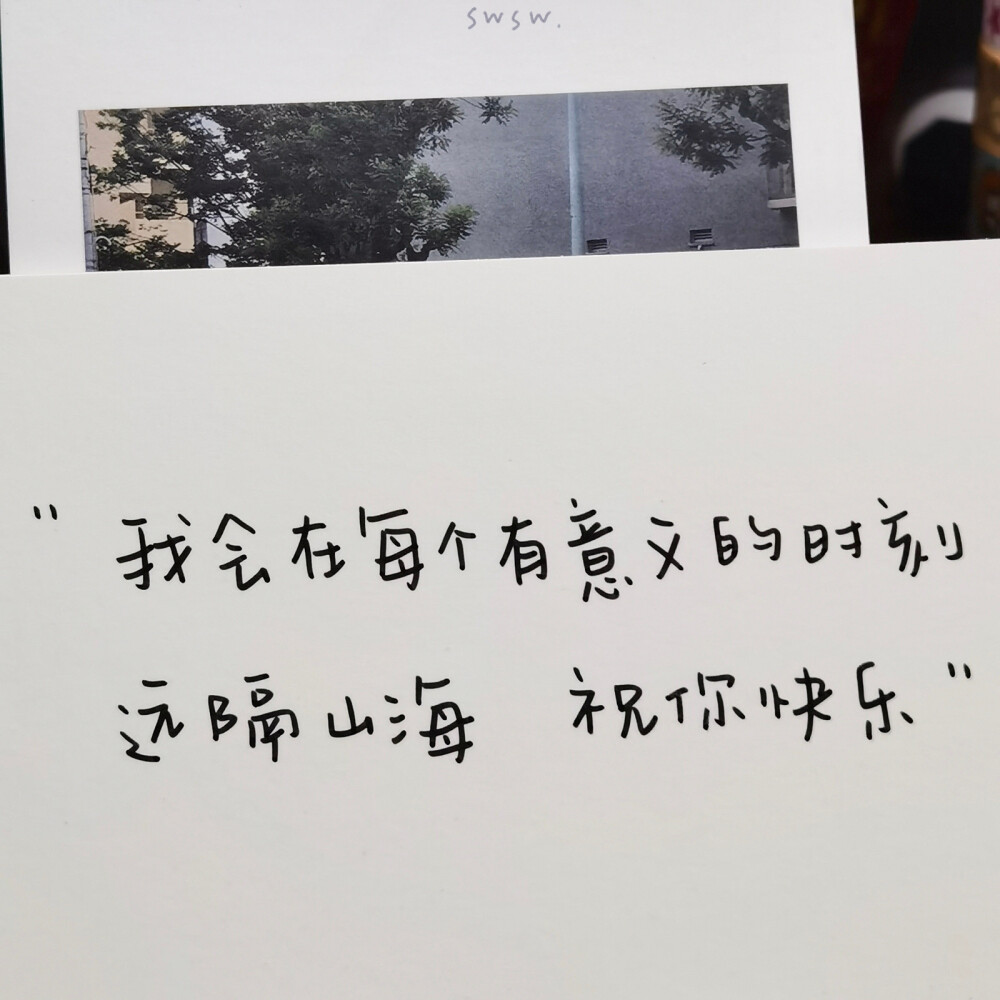 swsw.
"我会在每个有意义的时刻
远隔山海 祝你快乐"